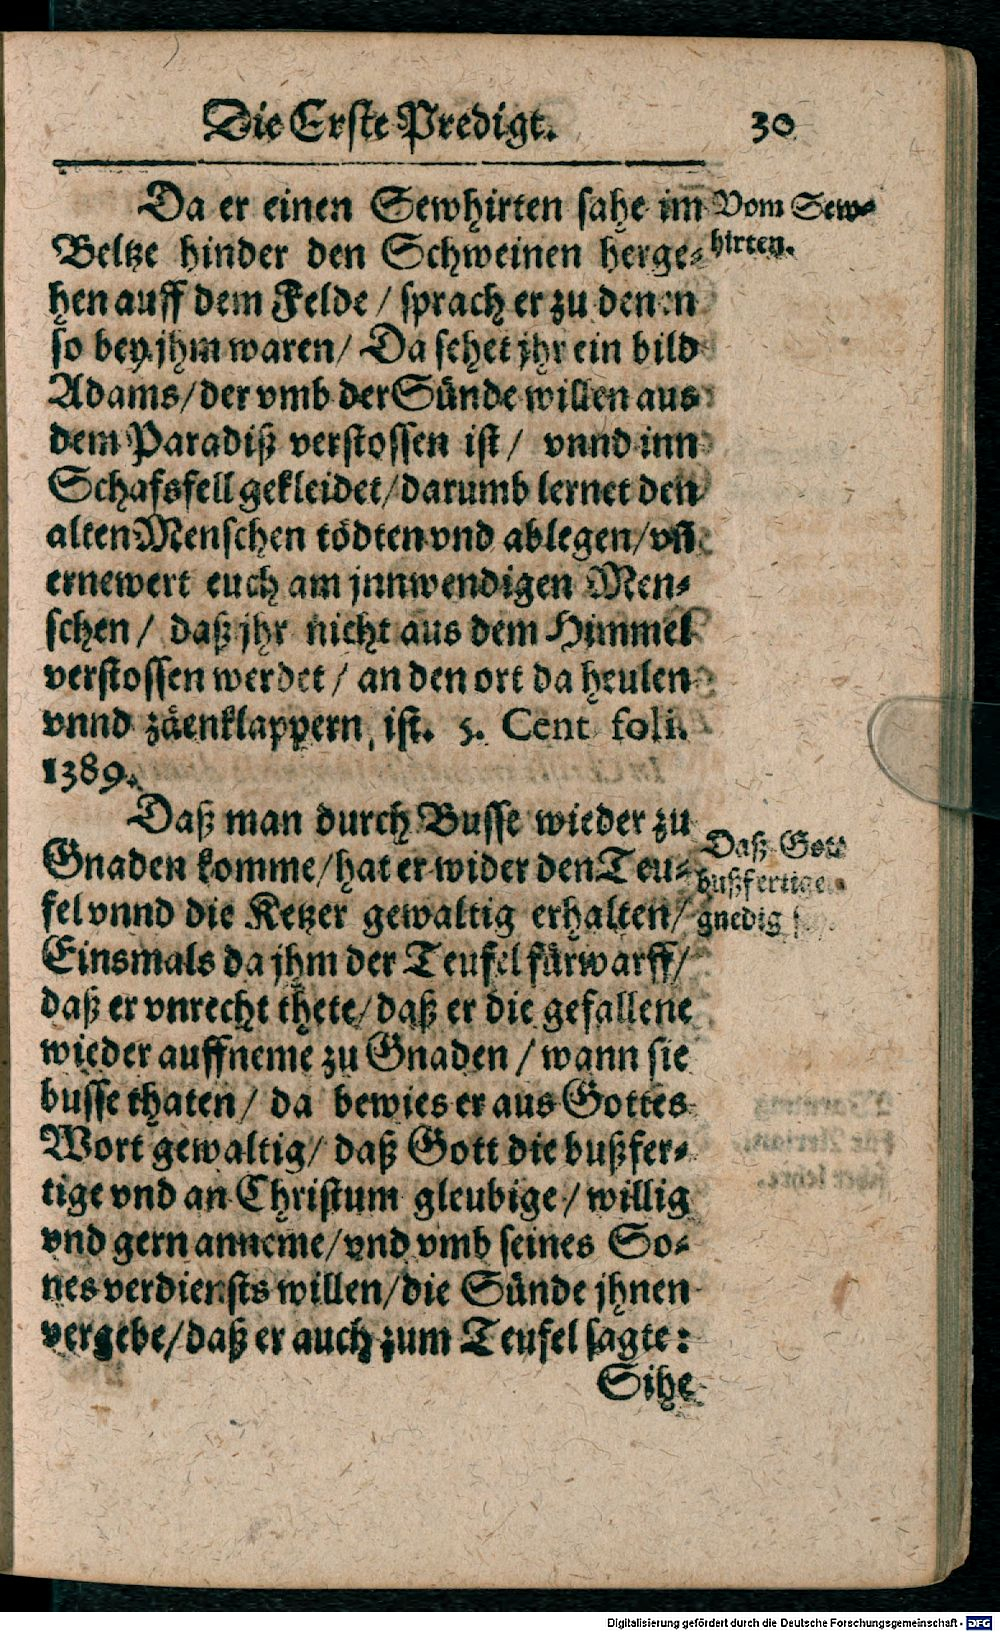 Die Erste Predigt. 30
Da er einen Sewhirten sahe im
Vom Sew-
hirten.
Beltze hinder den Schweinen herge-
hen auff dem Felde / sprach er zu denen
so bey jhm waren / Da sehet jhr ein bild
Adams / der vmb der Sünde willen aus
dem Paradiß verstossen ist / vnnd inn
Schafsfell gekleidet / darumb lernet den
alten Menschen tödten vnd ablegen / vñ
ernewert euch am jnnwendigen Men-
schen / daß jhr nicht aus dem Himmel
verstossen werdet / an den ort da heulen
vnnd zäenklappern ist. 5. Cent foli.
1389.
Daß man durch Busse wieder zu
Daß Gott
bußfertigen
gnedig
Gnaden komme / hat er wider den Teu-
fel vnnd die Ketzer gewaltig erhalten /
Einsmals da jhm der Teufel fürwarff /
daß er vnrecht thete / daß er die gefallene
wieder auffneme zu Gnaden / wann sie
busse thaten / da bewies er aus Gottes
Wort gewaltig / daß Gott die bußfer-
tige vnd an Christum gleubige / willig
vnd gern anneme / vnd vmb seines So-
nes verdiensts willen / die Sünde jhnen
vergebe / daß er auch zum Teufel sagte:
Sihe
Digitalisierung gefördert durch die Deutsche Forschungsgemeinschaft - DFG